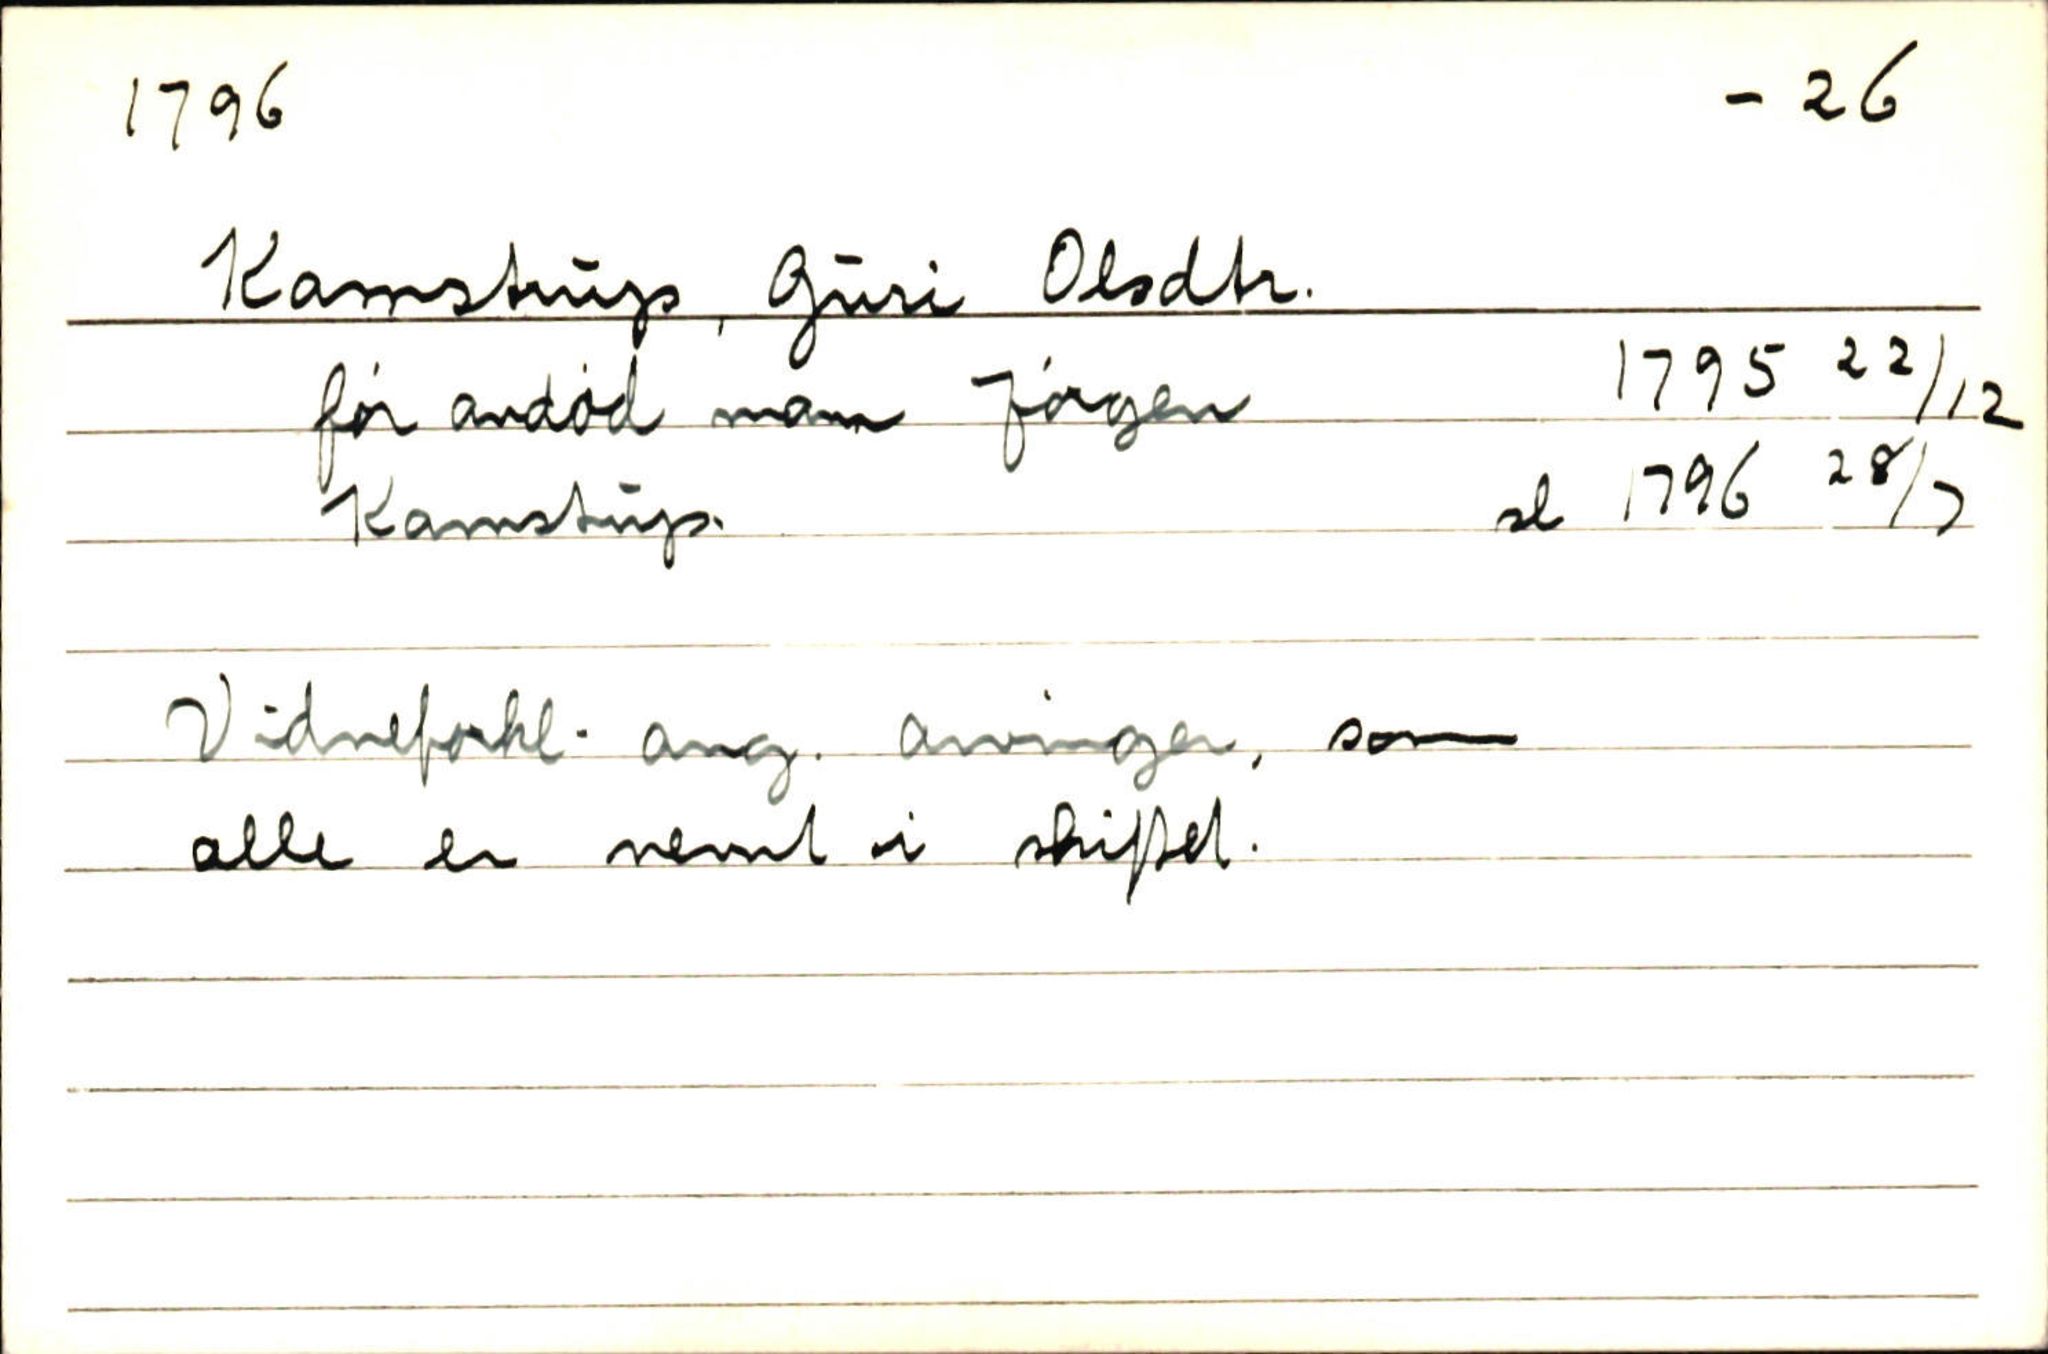 1796 - 26
Kamstrup, Guri Olsdtr.
før avdød mann Jörgen 1795 22/12
Kamstrup. sl 1796 28/7
Vidneforkl. ang. arvinger, som
alle er nevnt i skiftet.